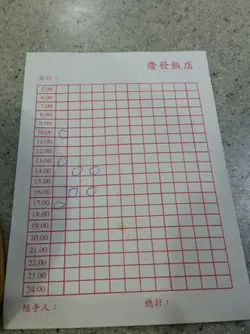 慶發飯店
5.00
6.00
7.00
8.00
9.00
10.00
11.00
12.00
13.00
14.00
15.00
16.00
17.00
18.00
19.00
20.00
21.00
22.00
23.00
24.00
經手人： 總計：